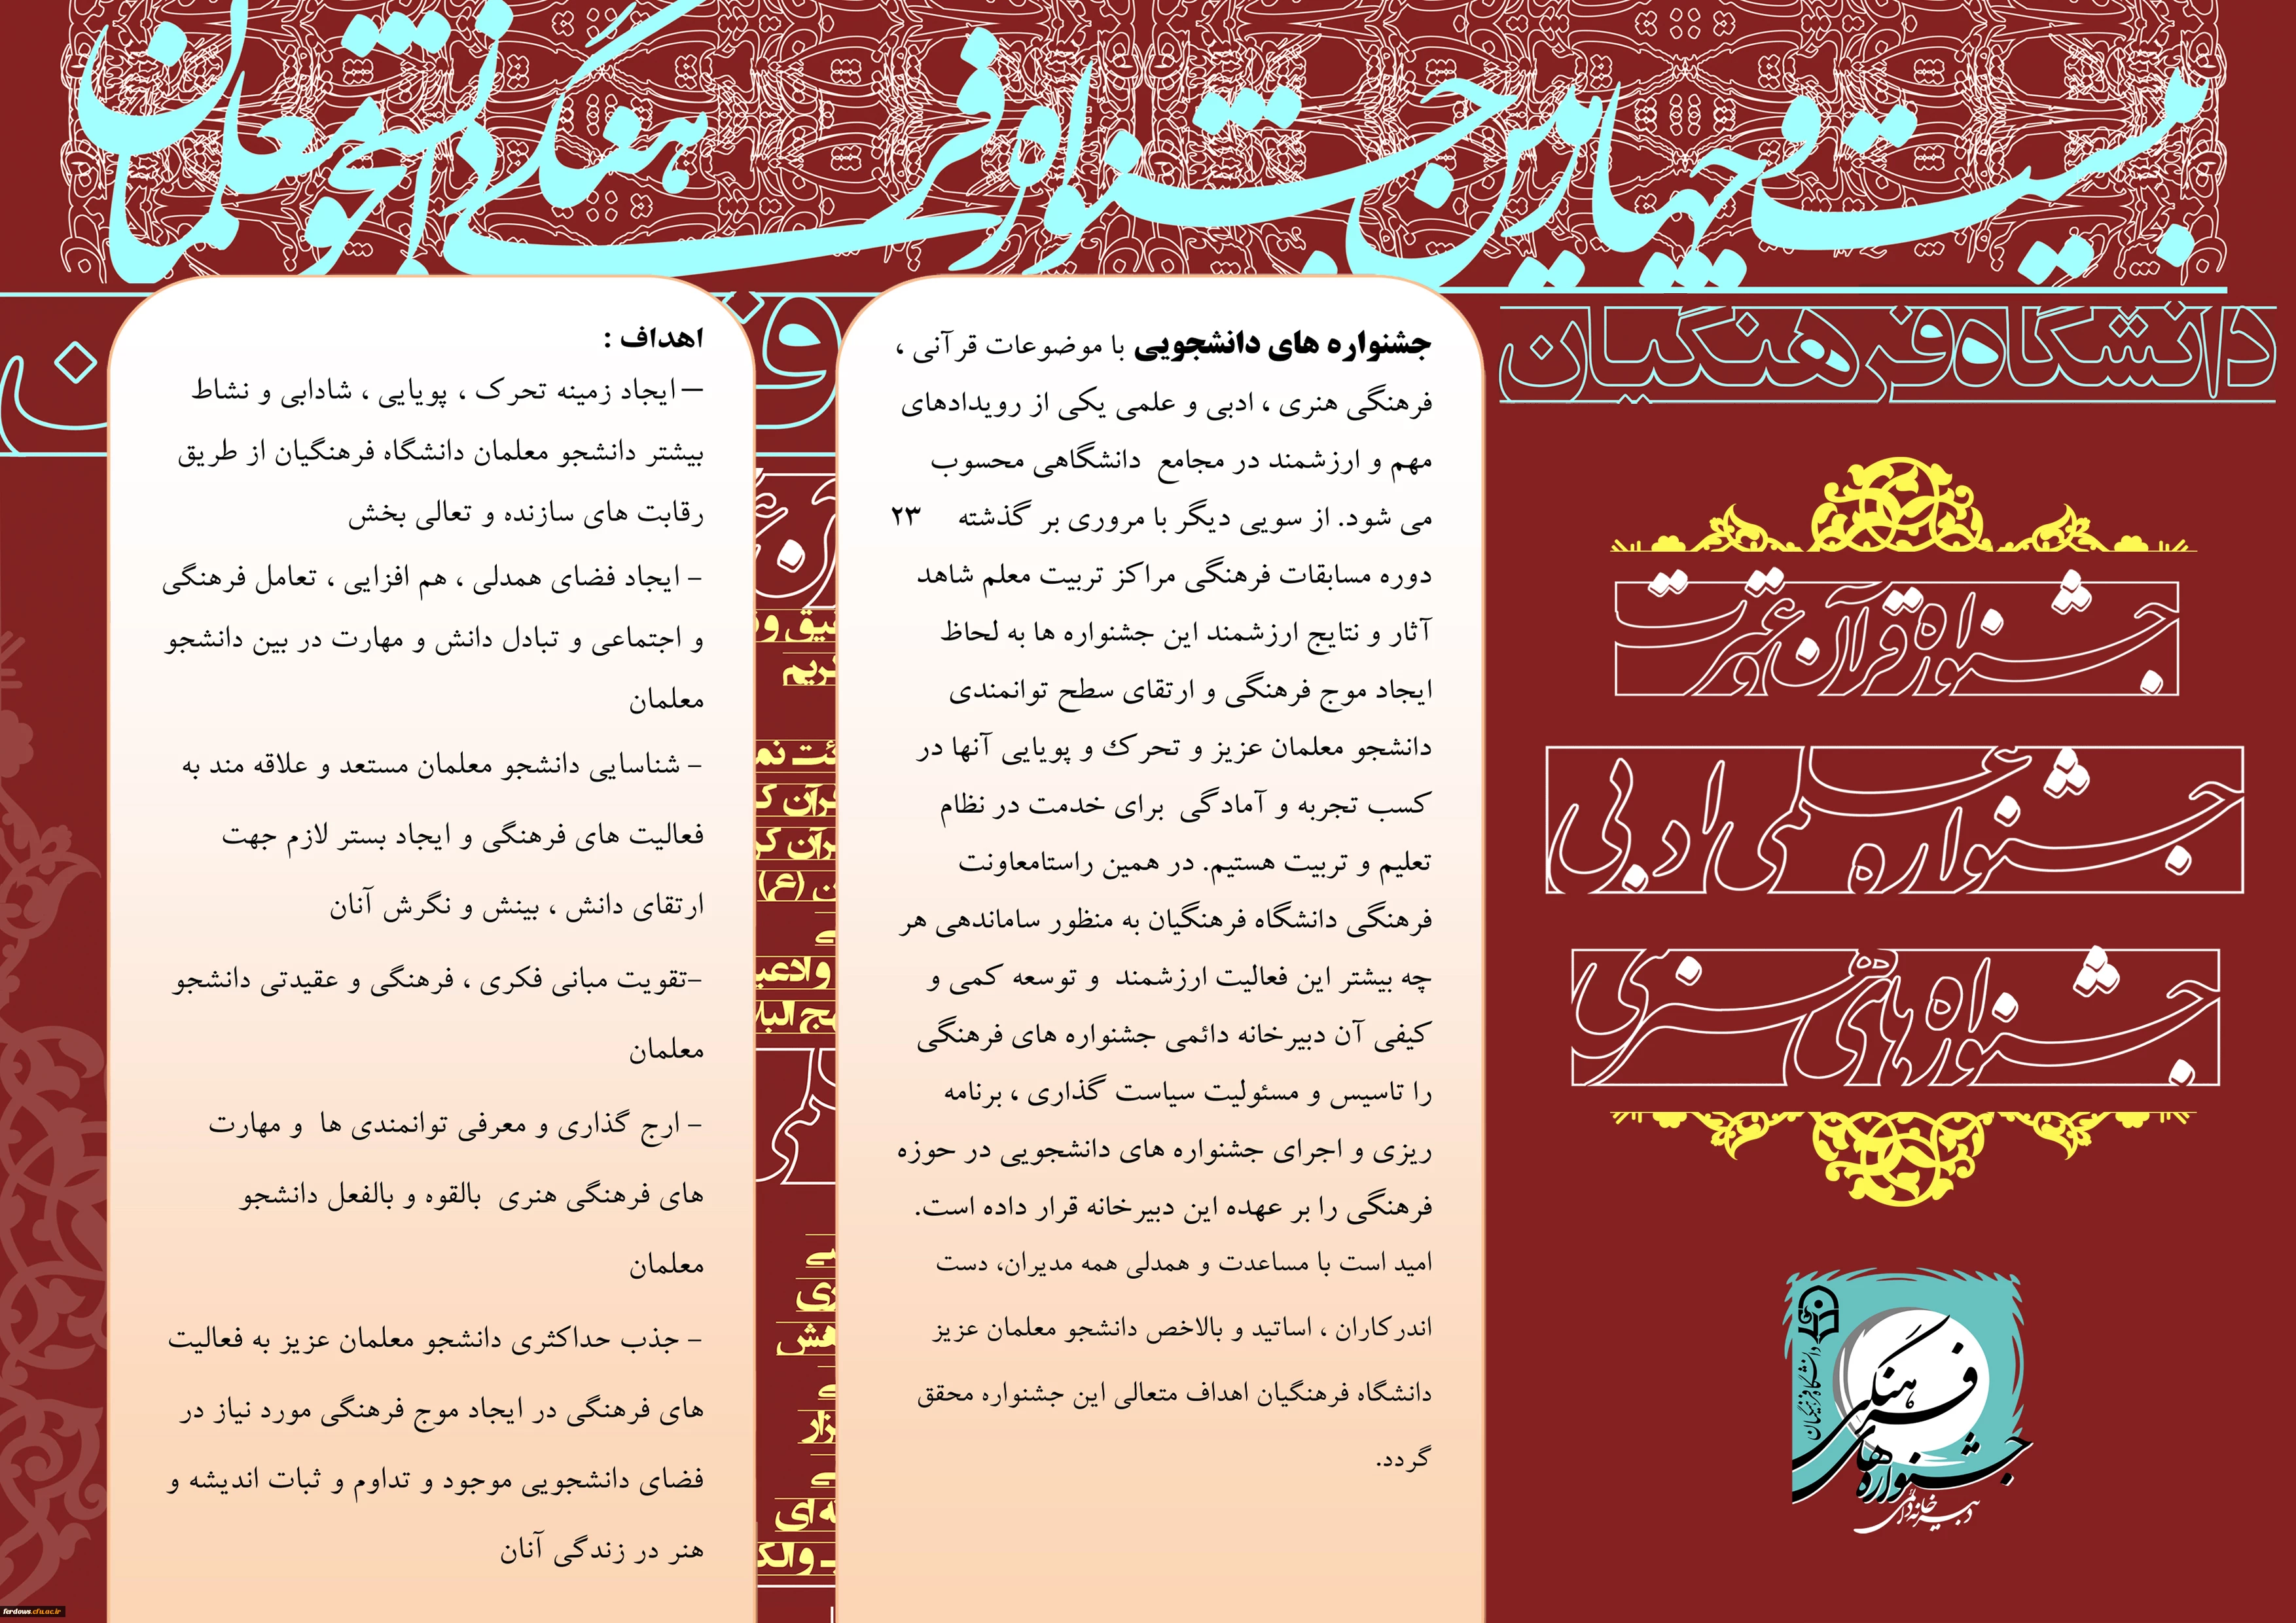 بیست و چهارمین جشنواره فرهنگی دانشجو معلمان
دانشگاه فرهنگیان
جشنواره قرآن و عترت
جشنواره علمی ادبی
جشنواره های هنری
دانشگاه فرهنگیان
فرهنگی
جشنواره های
دبیرخانه دائمی
جشنواره های دانشجویی با موضوعات قرآنی ،
فرهنگی هنری ، ادبی و علمی یکی از رویدادهای
مهم و ارزشمند در مجامع دانشگاهی محسوب
می شود. از سویی دیگر با مروری بر گذشته ۲۳
دوره مسابقات فرهنگی مراکز تربیت معلم شاهد
آثار و نتایج ارزشمند این جشنواره ها به لحاظ
ایجاد موج فرهنگی و ارتقای سطح توانمندی
دانشجو معلمان عزیز و تحرک و پویایی آنها در
کسب تجربه و آمادگی برای خدمت در نظام
تعلیم و تربیت هستیم. در همین راستامعاونت
فرهنگی دانشگاه فرهنگیان به منظور ساماندهی هر
چه بیشتر این فعالیت ارزشمند و توسعه کمی و
کیفی آن دبیرخانه دائمی جشنواره های فرهنگی
را تاسیس و مسئولیت سیاست گذاری ، برنامه
ریزی و اجرای جشنواره های دانشجویی در حوزه
فرهنگی را بر عهده این دبیرخانه قرار داده است.
امید است با مساعدت و همدلی همه مدیران، دست
اندرکاران ، اساتید و بالاخص دانشجو معلمان عزیز
دانشگاه فرهنگیان اهداف متعالی این جشنواره محقق
گردد.
اهداف :
– ایجاد زمینه تحرک ، پویایی ، شادابی و نشاط
بیشتر دانشجو معلمان دانشگاه فرهنگیان از طریق
رقابت های سازنده و تعالی بخش
- ایجاد فضای همدلی ، هم افزایی ، تعامل فرهنگی
و اجتماعی و تبادل دانش و مهارت در بین دانشجو
معلمان
- شناسایی دانشجو معلمان مستعد و علاقه مند به
فعالیت های فرهنگی و ایجاد بستر لازم جهت
ارتقای دانش ، بینش و نگرش آنان
-تقویت مبانی فکری ، فرهنگی و عقیدتی دانشجو
معلمان
- ارج گذاری و معرفی توانمندی ها و مهارت
های فرهنگی هنری بالقوه و بالفعل دانشجو
معلمان
- جذب حداکثری دانشجو معلمان عزیز به فعالیت
های فرهنگی در ایجاد موج فرهنگی مورد نیاز در
فضای دانشجویی موجود و تداوم و ثبات اندیشه و
هنر در زندگی آنان
ferdows.cfu.ac.ir